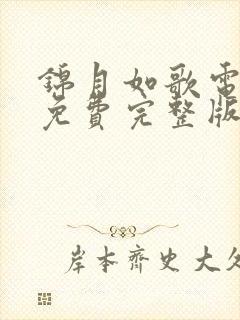 錦月如歌電
免費完整版
岸本齊史大久